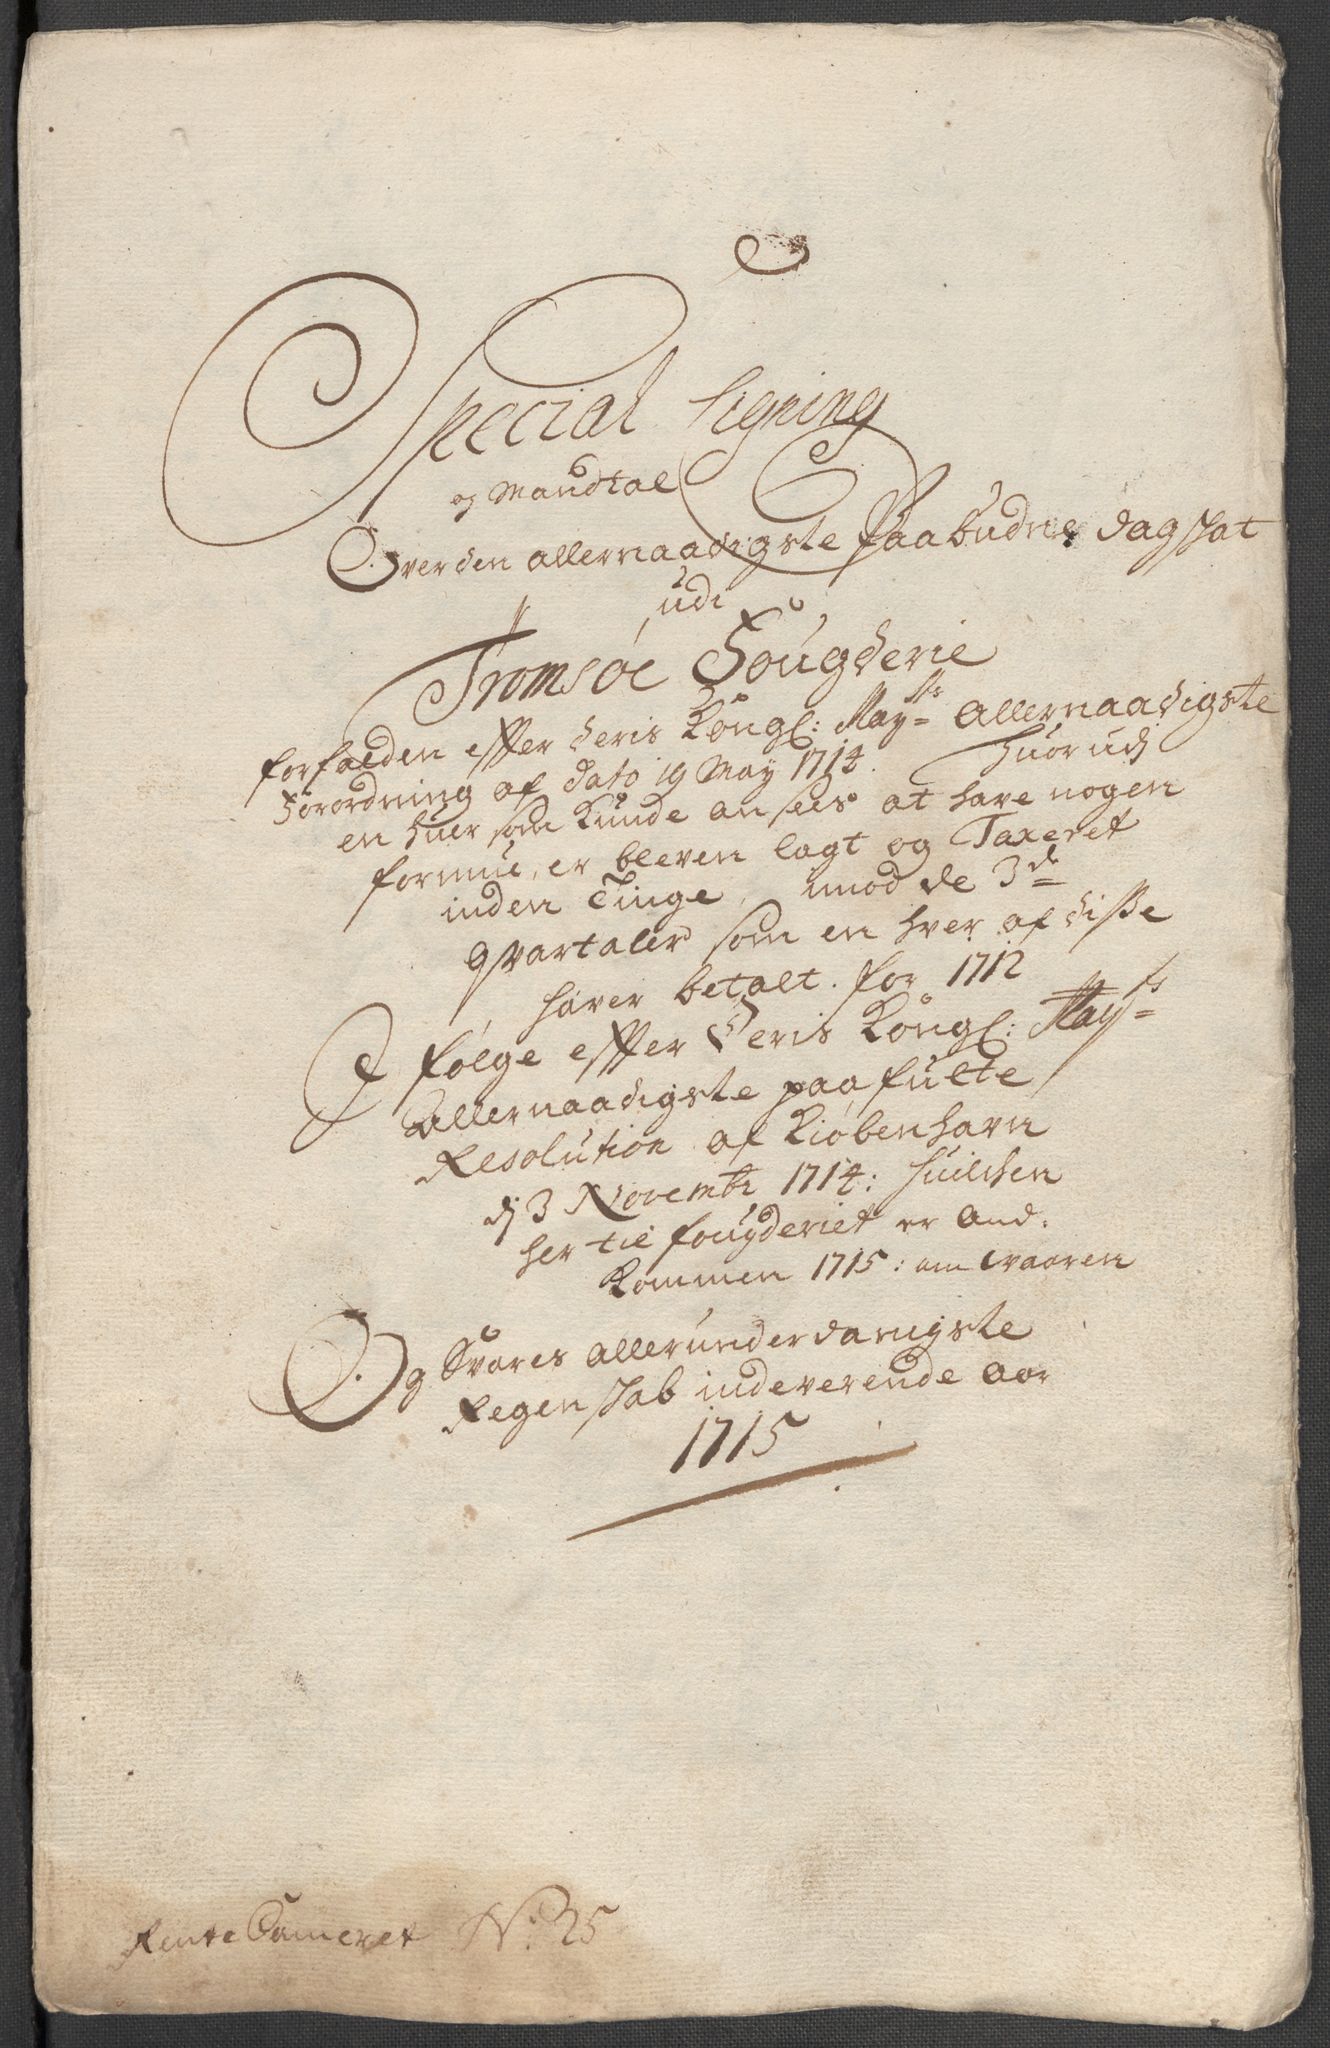 Special Ligning
og Mandtal
Over den allernaadigste Paabudne dagskat
udi
Tromsøe Fougderie
forfalden effter deris Kongl: May:ts Allernaadigste
Forordning af dato 19 May 1714. huorudj
en huer som kunde ansees at have nogen
formue, er bleven lagt og Taxeret
inden Tinge, imod de 3de
qvartaler som en hver af disse
haver betalt. for 1712
J følge effter Deris Kongl: May:ts
Allernaadigste paafulte
Resolution af Kiøbenhavn
dj 3 Novembr 1714: huilchen
her til fougderiet er And.
kommen 1715: om vaaren
Og Svares allerunderdanigste
Regenskab indeverende aar
1715
Rente Cameret No: 25